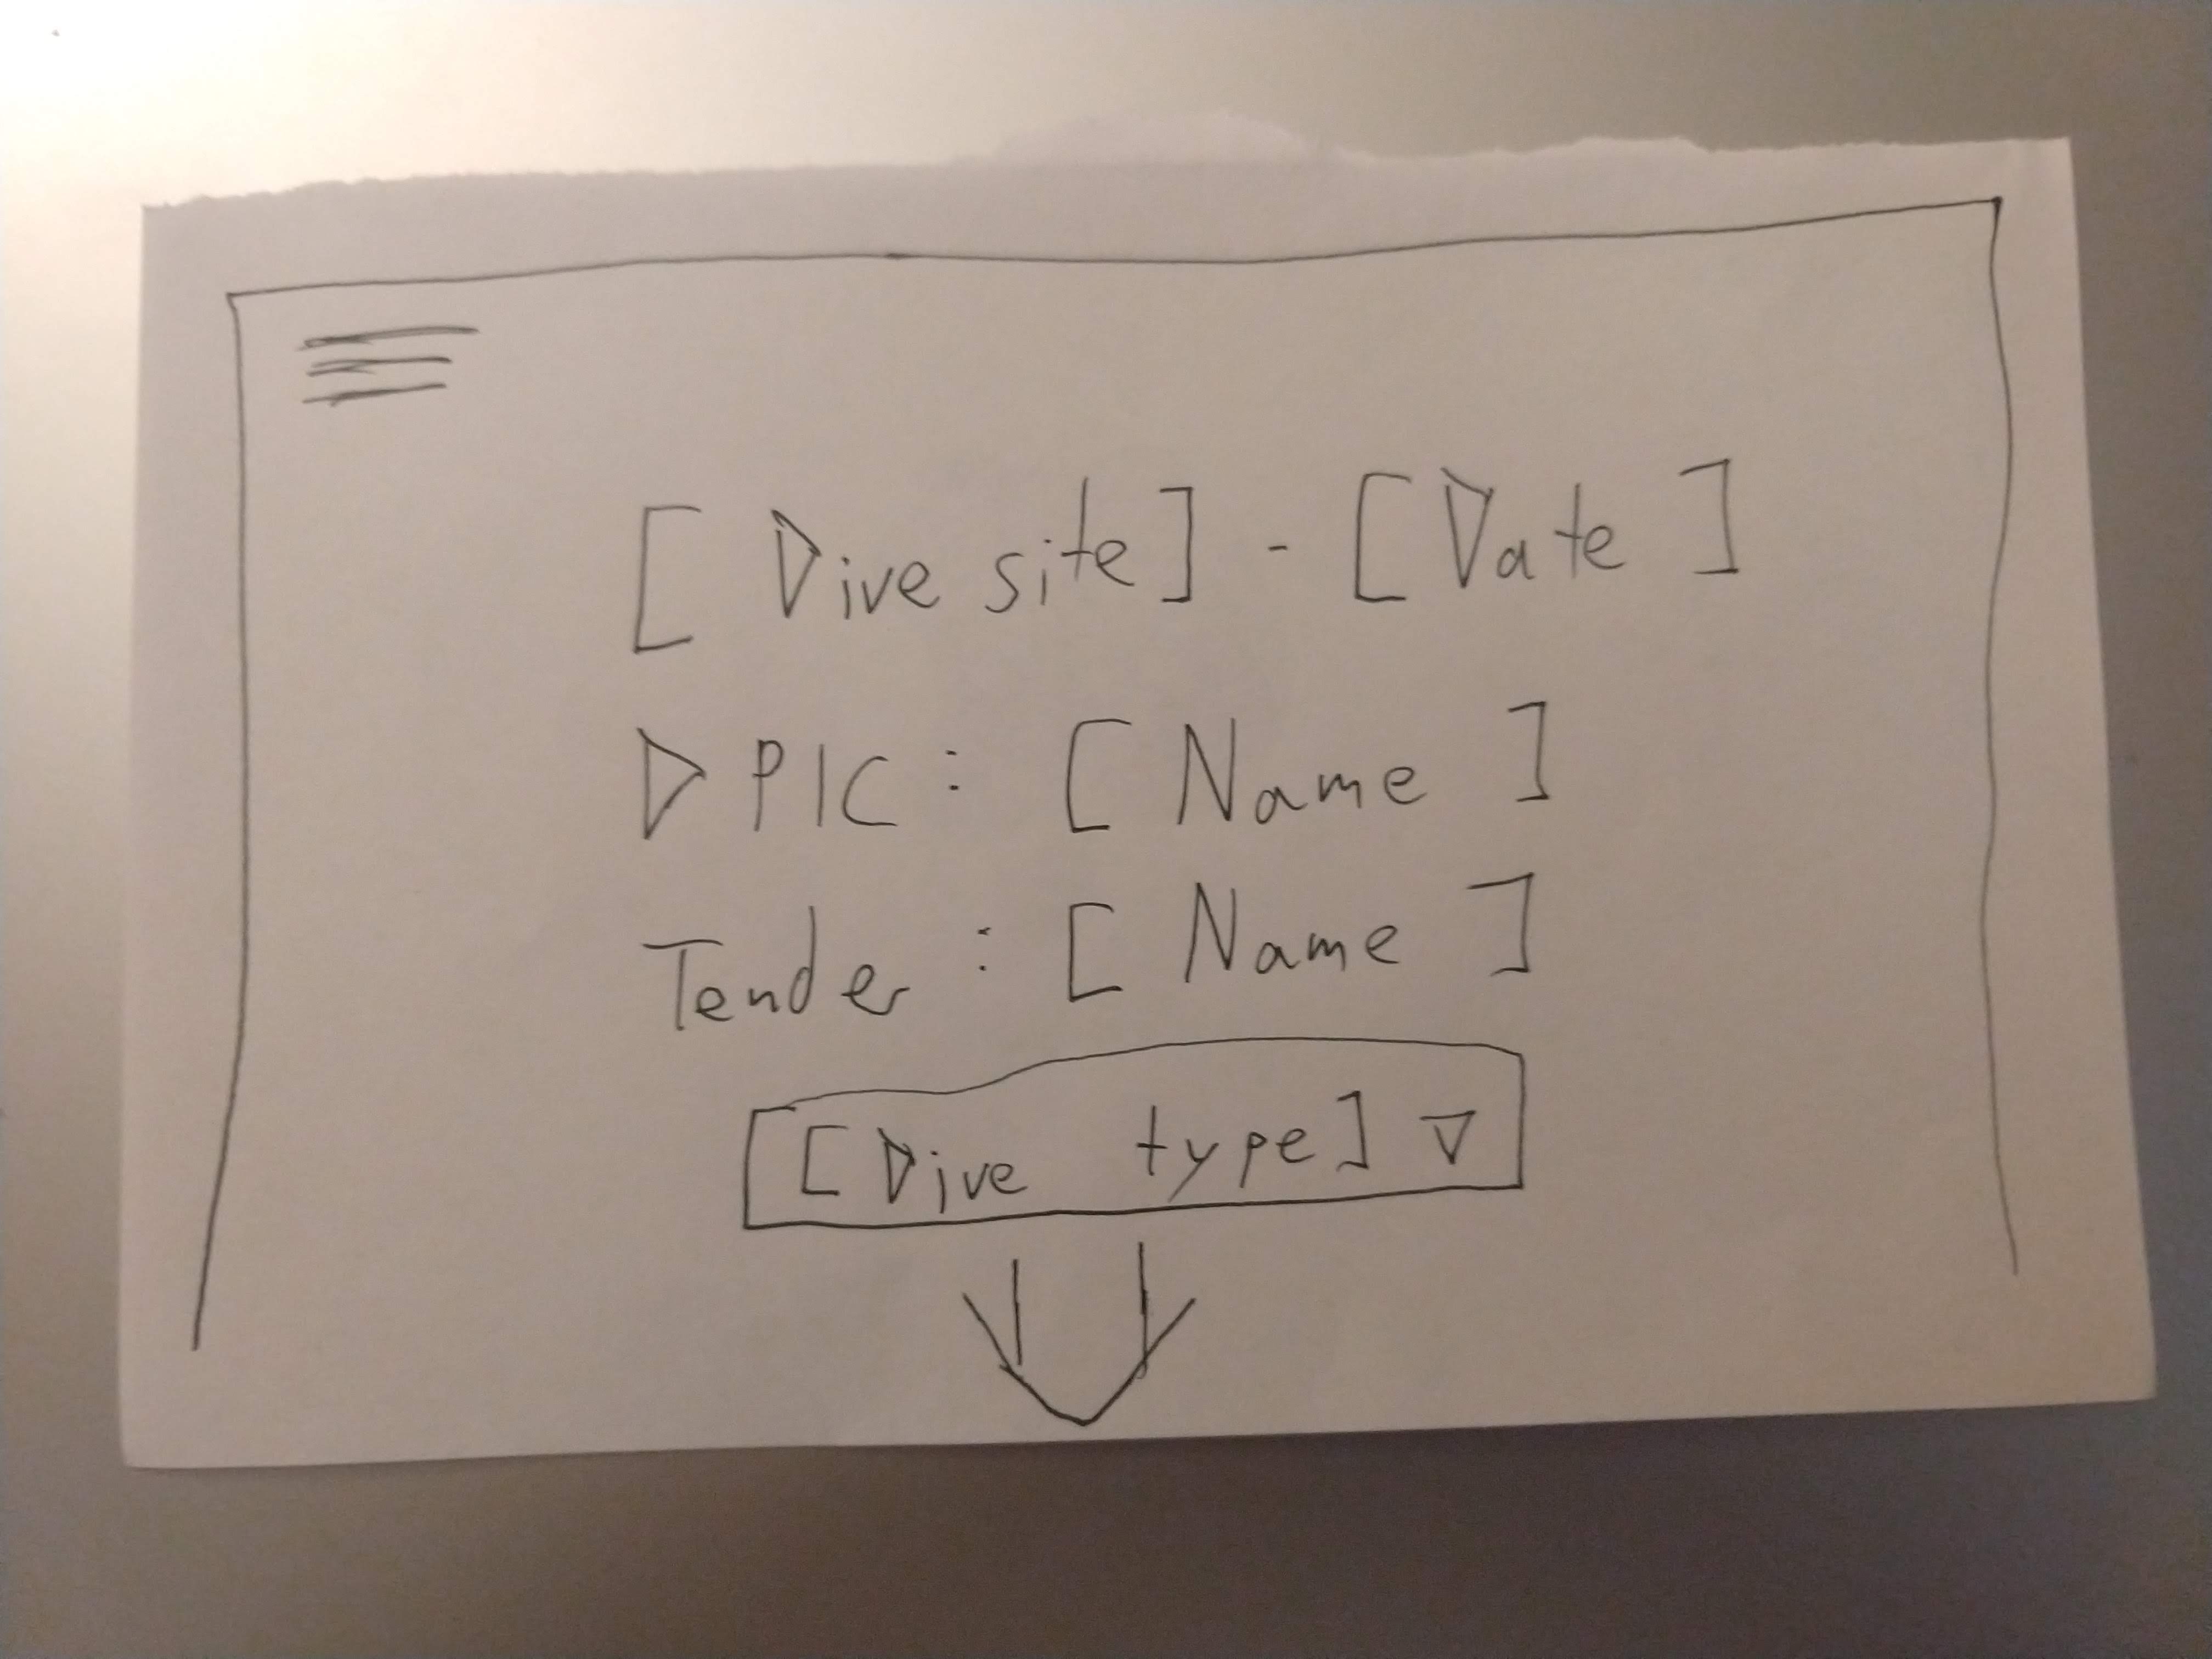 [ Dive site] - [ Date ]
DPIC : [ Name ]
Tender : [ Name ]
[Dive type] ▽